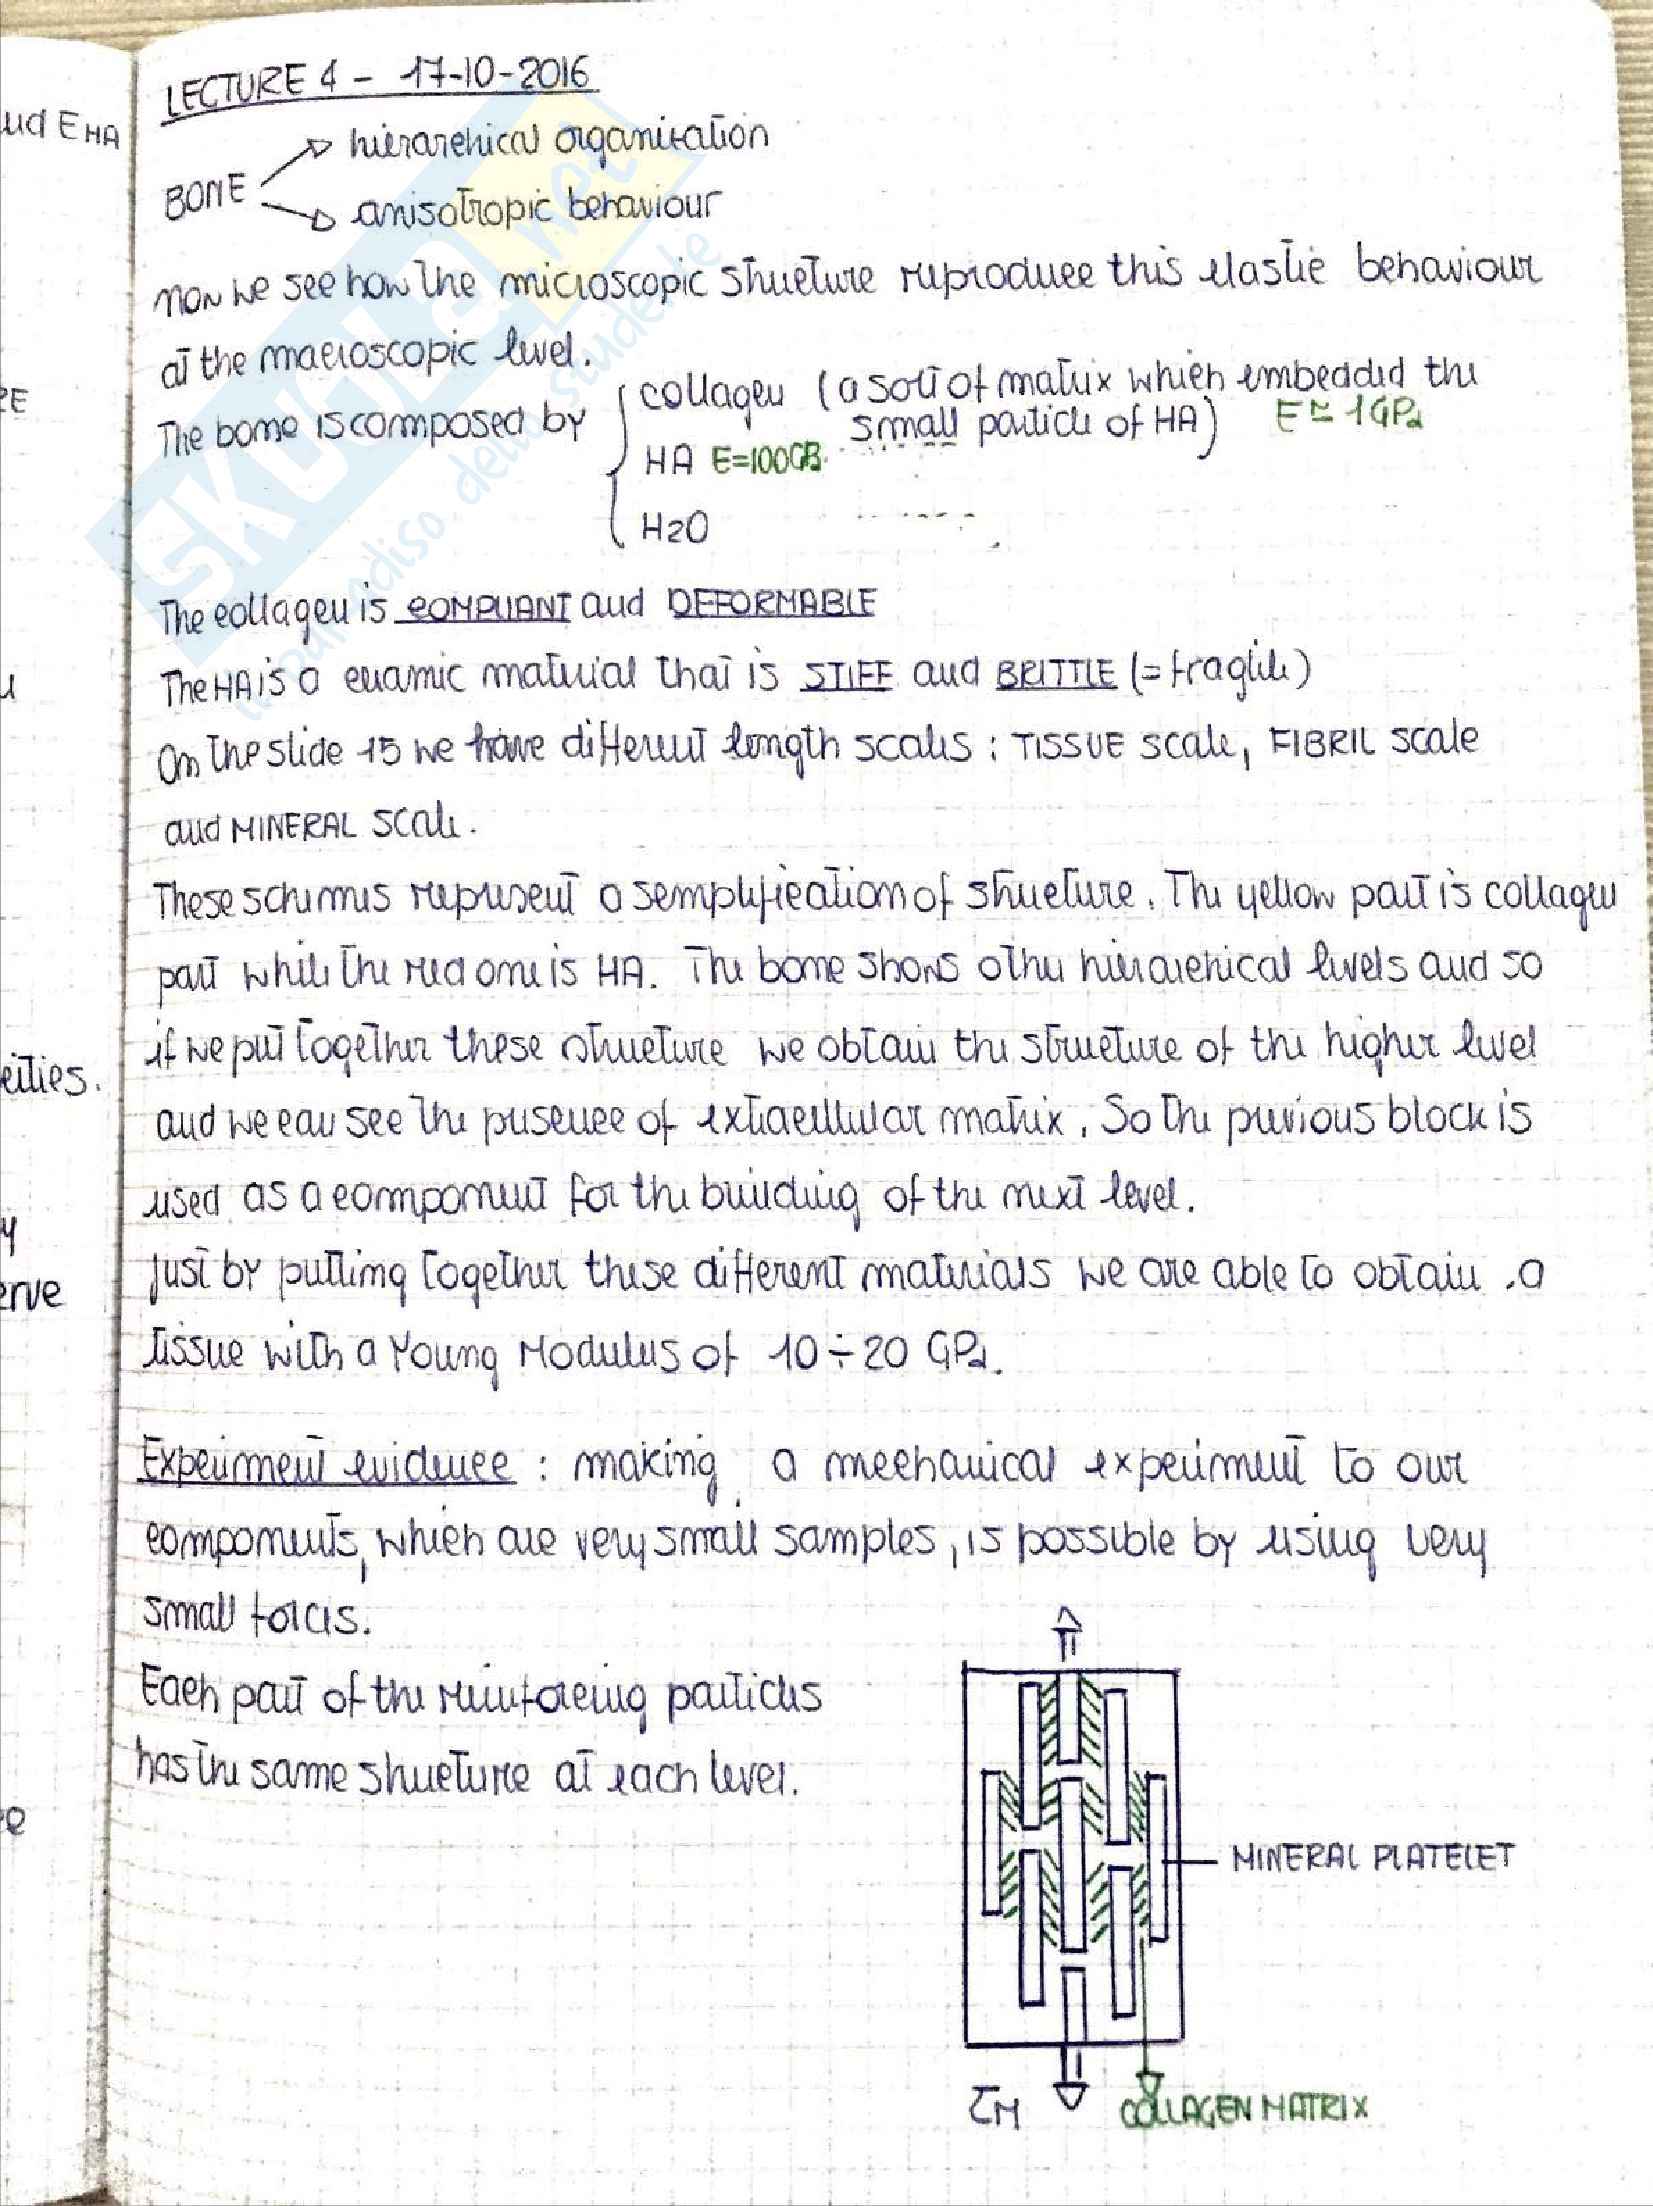 LECTURE 4 - 17-10-2016
ud EHA
hierarchical organisation
BONE
anisotropic behaviour
Now we see how the microscopic structure reproduce this elastic behaviour
at the macroscopic level.
RE
collagen (a sort of matrix which embedded the
The bone is composed by
small particle of HA) E ≃ 1GPa
HA E=100GPa
H2O
The collagen is COMPLIANT and DEFORMABLE
The HA is a ceramic material that is STIFF and BRITTLE (= fragile)
On the slide 15 we have different length scales : TISSUE scale, FIBRIL scale
and MINERAL scale.
These schemes represent a semplification of structure. The yellow part is collagen
part while the red one is HA. The bone shows other hierarchical levels and so
if we put together these structure we obtain the structure of the higher level
cities.
and we can see the presence of extracellular matrix. So the previous block is
used as a component for the building of the next level.
y
Just by putting together these different materials we are able to obtain a
erve
tissue with a Young Modulus of 10÷20 GPa.
Experiment evidence : making a mechanical experiment to our
components, which are very small samples, is possible by using very
small forces.
Each part of the reinforcing particles
has the same structure at each level.
e
MINERAL PLATELET
COLLAGEN MATRIX
SKUOLA.net
il paradiso dello studente